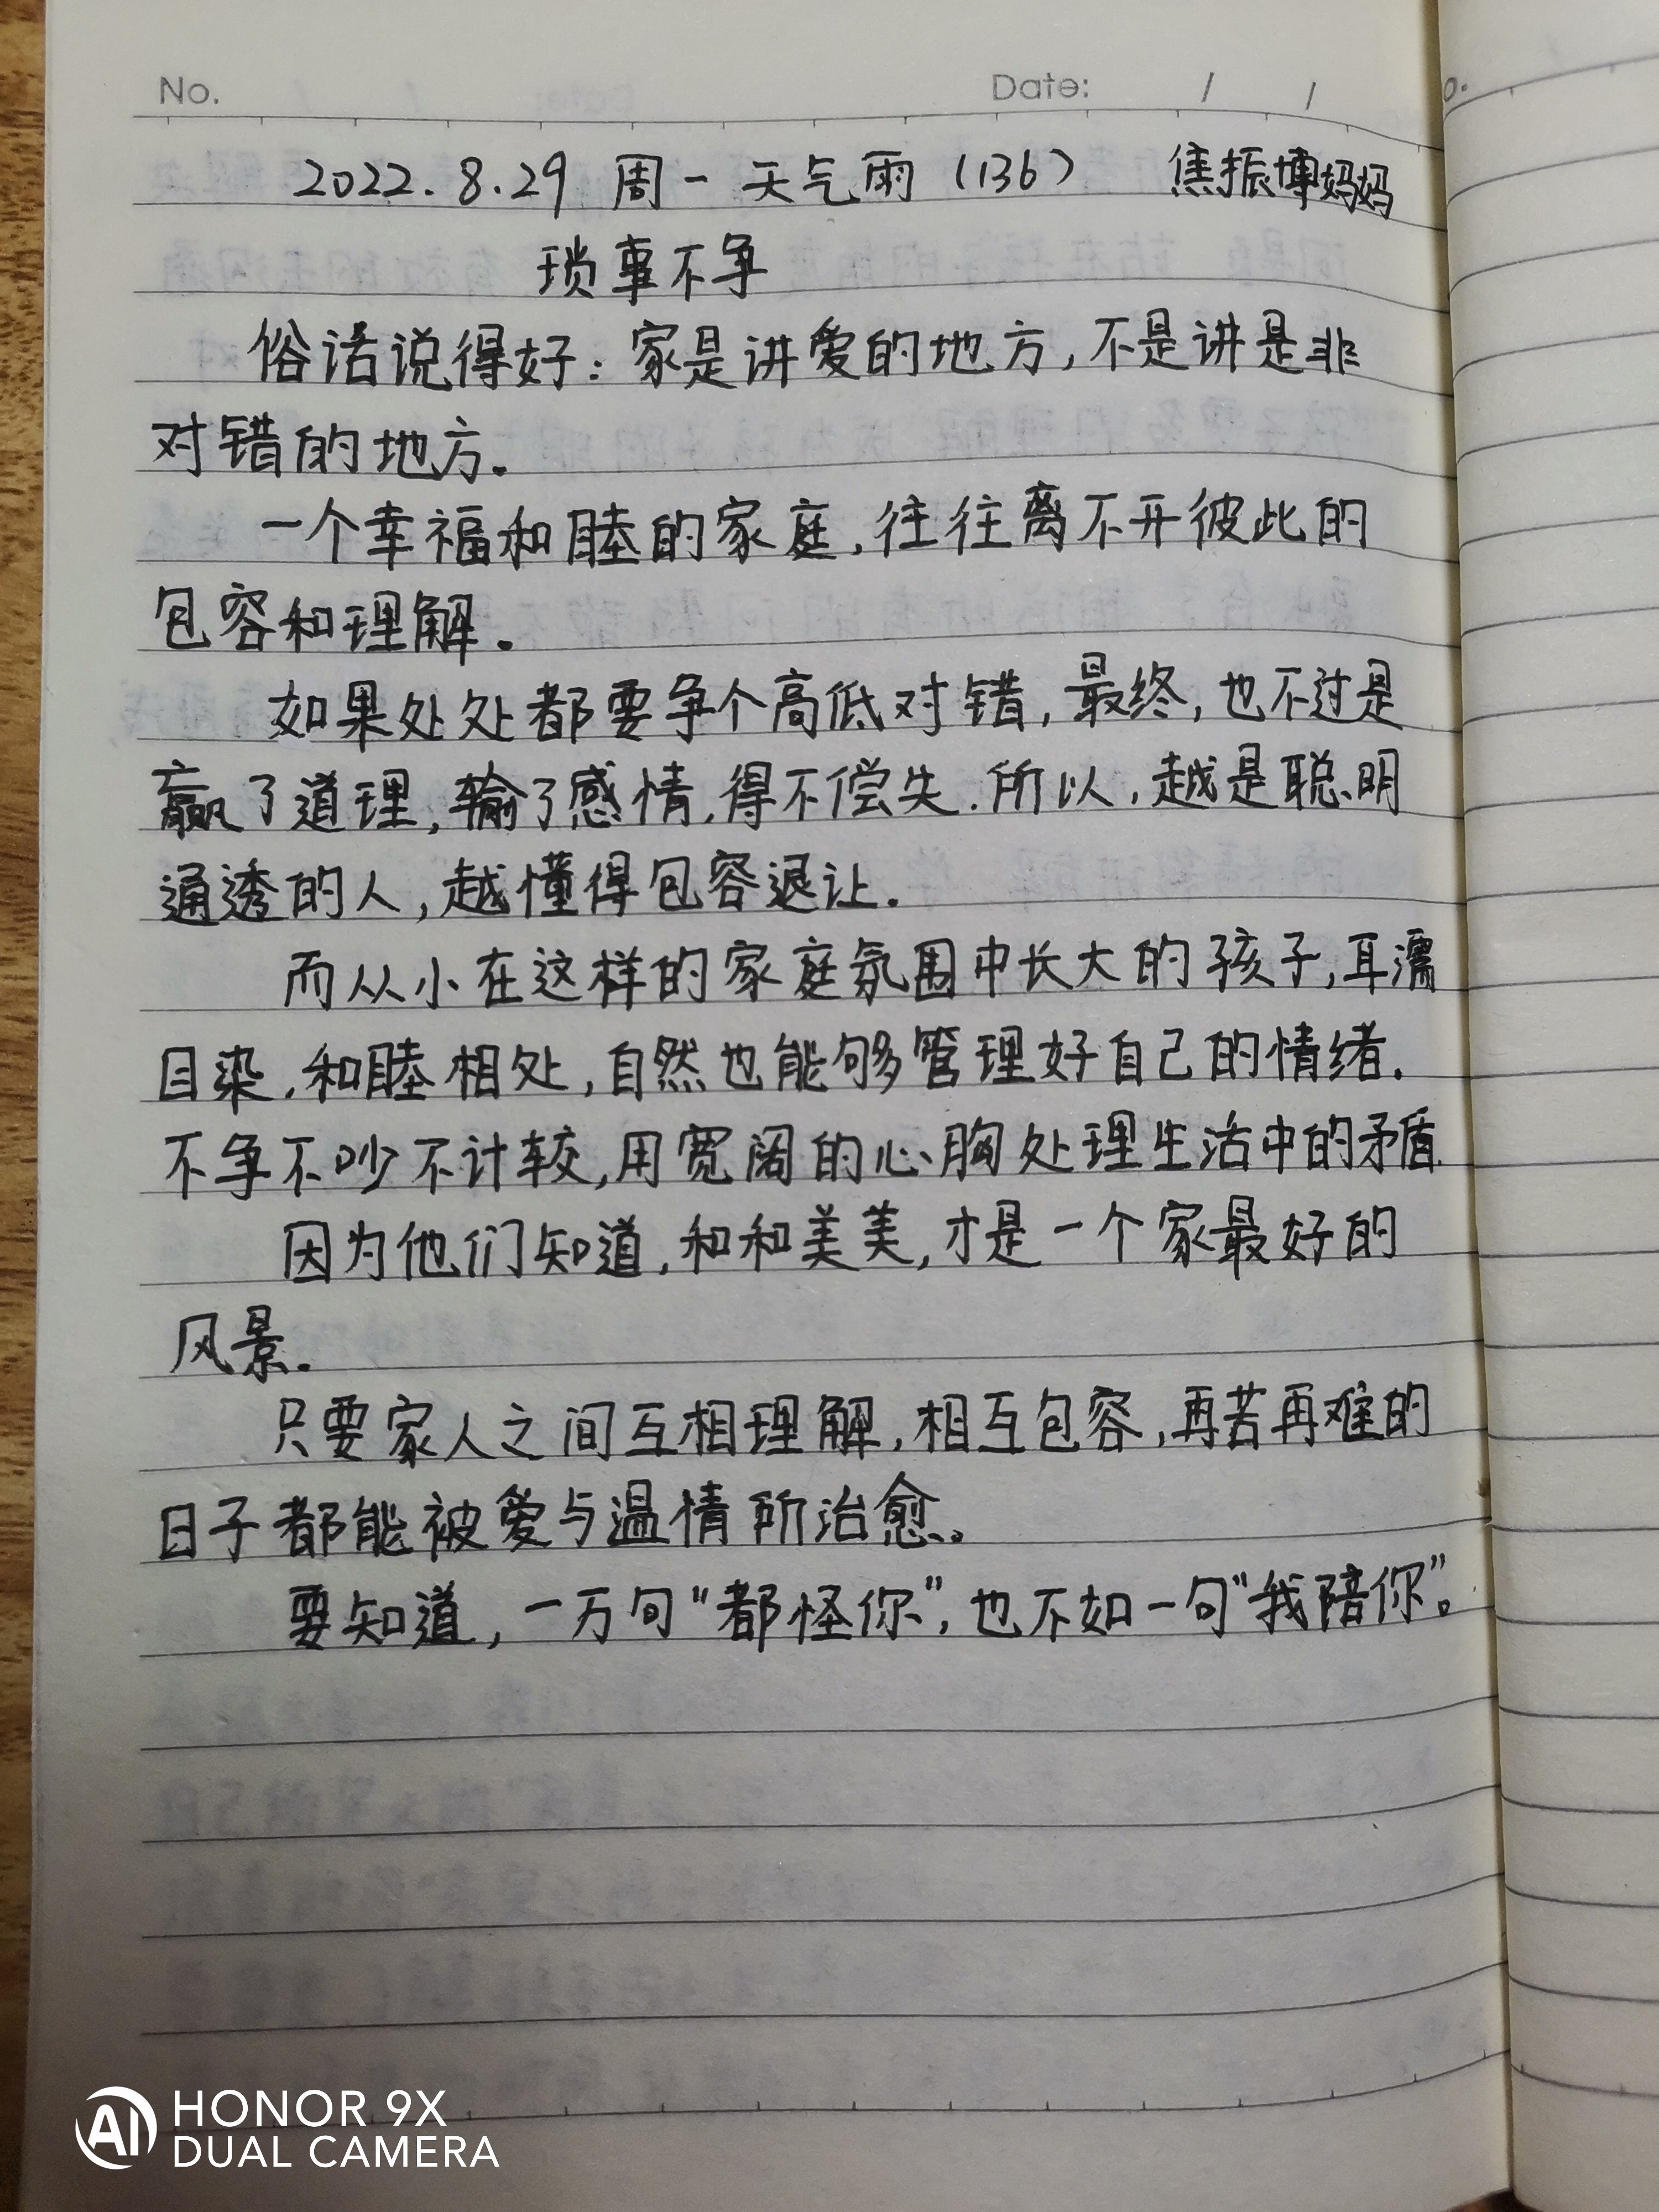 No. Date: / /
2022.8.29 周一 天气雨（136） 焦振博妈妈
琐事不争
俗话说得好：家是讲爱的地方，不是讲是非
对错的地方.
一个幸福和睦的家庭，往往离不开彼此的
包容和理解.
如果处处都要争个高低对错，最终，也不过是
赢了道理，输了感情，得不偿失.所以，越是聪明
通透的人，越懂得包容退让.
而从小在这样的家庭氛围中长大的孩子，耳濡
目染，和睦相处，自然也能够管理好自己的情绪.
不争不吵不计较，用宽阔的心胸处理生活中的矛盾.
因为他们知道，和和美美，才是一个家最好的
风景.
只要家人之间互相理解，相互包容，再苦再难的
日子都能被爱与温情所治愈。
要知道，一万句“都怪你”，也不如一句“我陪你”。
AI HONOR 9X
DUAL CAMERA